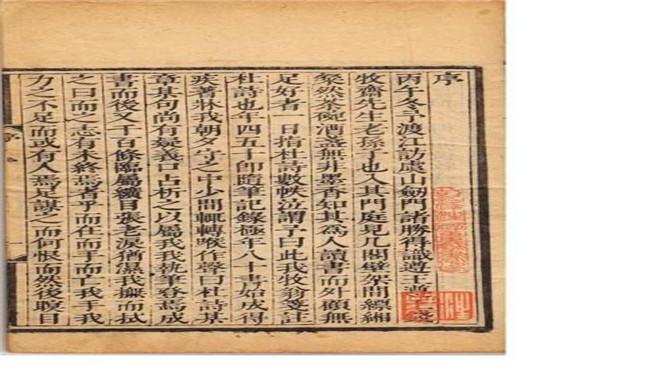 序
丙午冬予渡江訪虞山劍門諸勝得識遵王
牧齋先生老孫子也入其門庭見几閣壁架間縹緗
粲然茶碗酒盞無非墨香知其為人讀書而外顧無
足好者一日指杜詩數帙泣謂予曰此我牧翁箋註
杜詩也年四五十即隨筆記錄極年八十書始成得
疾著牀我朝夕守之中少間輒轉喉作聲曰杜詩某
章某句尚有疑義口占析之以屬我我執筆登焉成
書而後又千百條臨屬纊目張老淚猶濕我撫而拭
之曰而之志有未終焉者乎而在而手而亡我手我
力之不足而或有人焉足謀之而何恨而然後瞑目